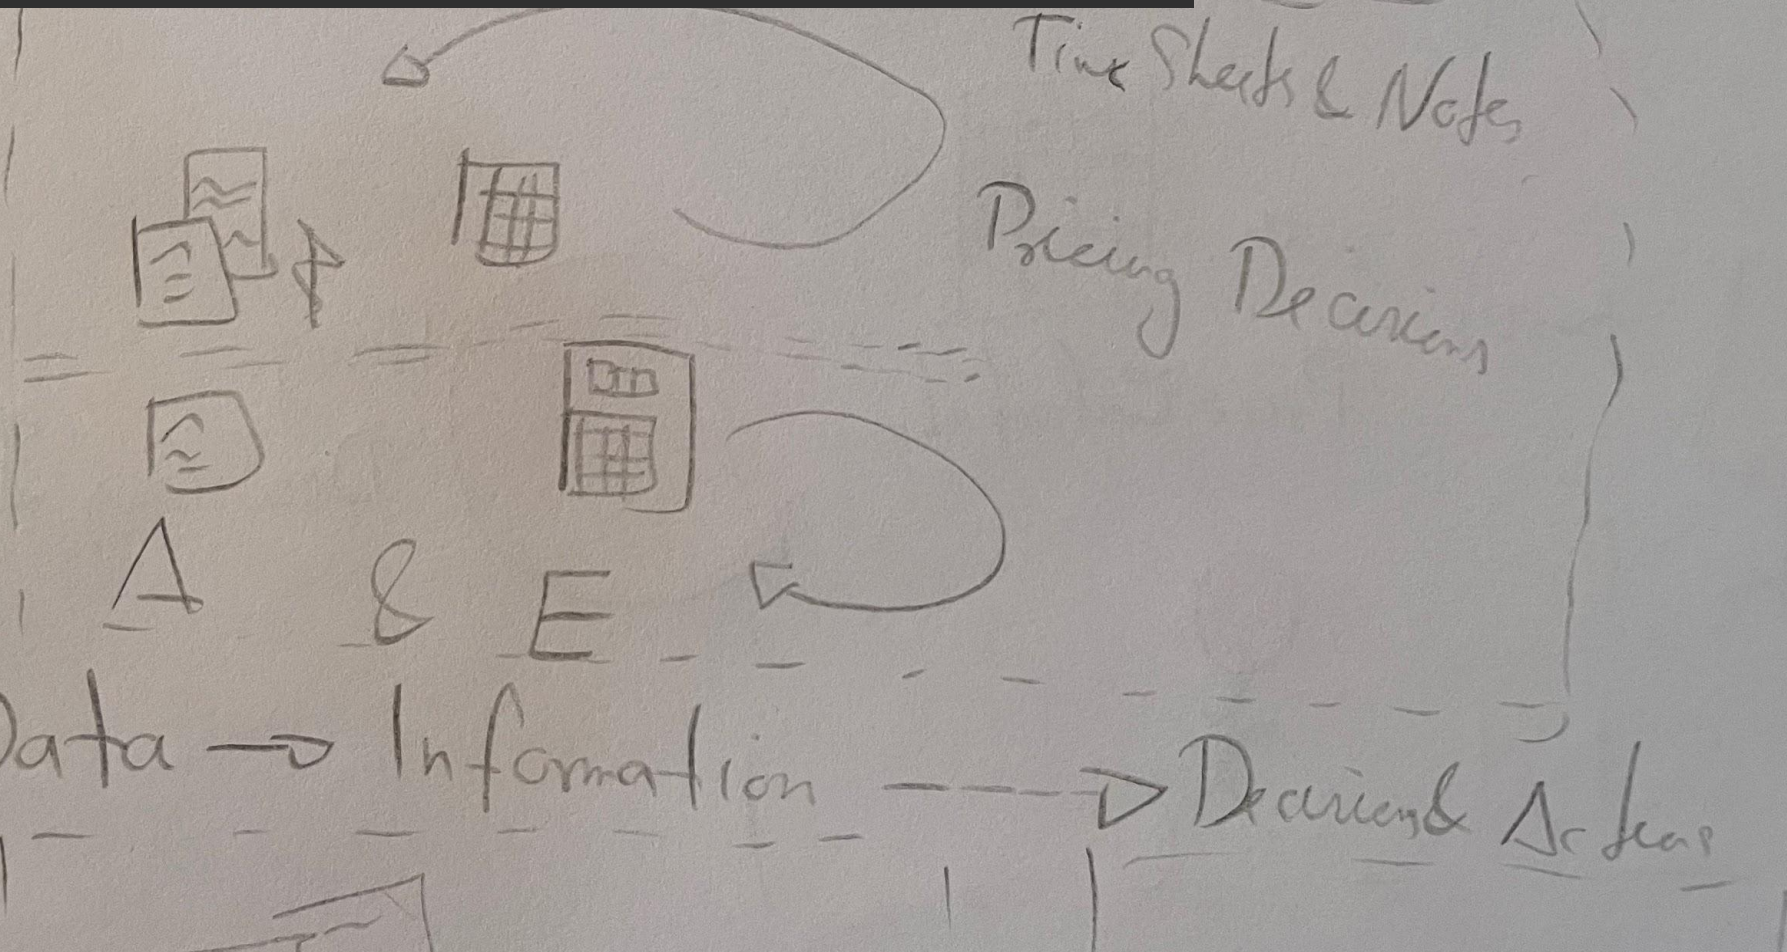 Time Sheets & Notes
Pricing Decisions
A & E
Data → Information ---→ Decisions & Actions